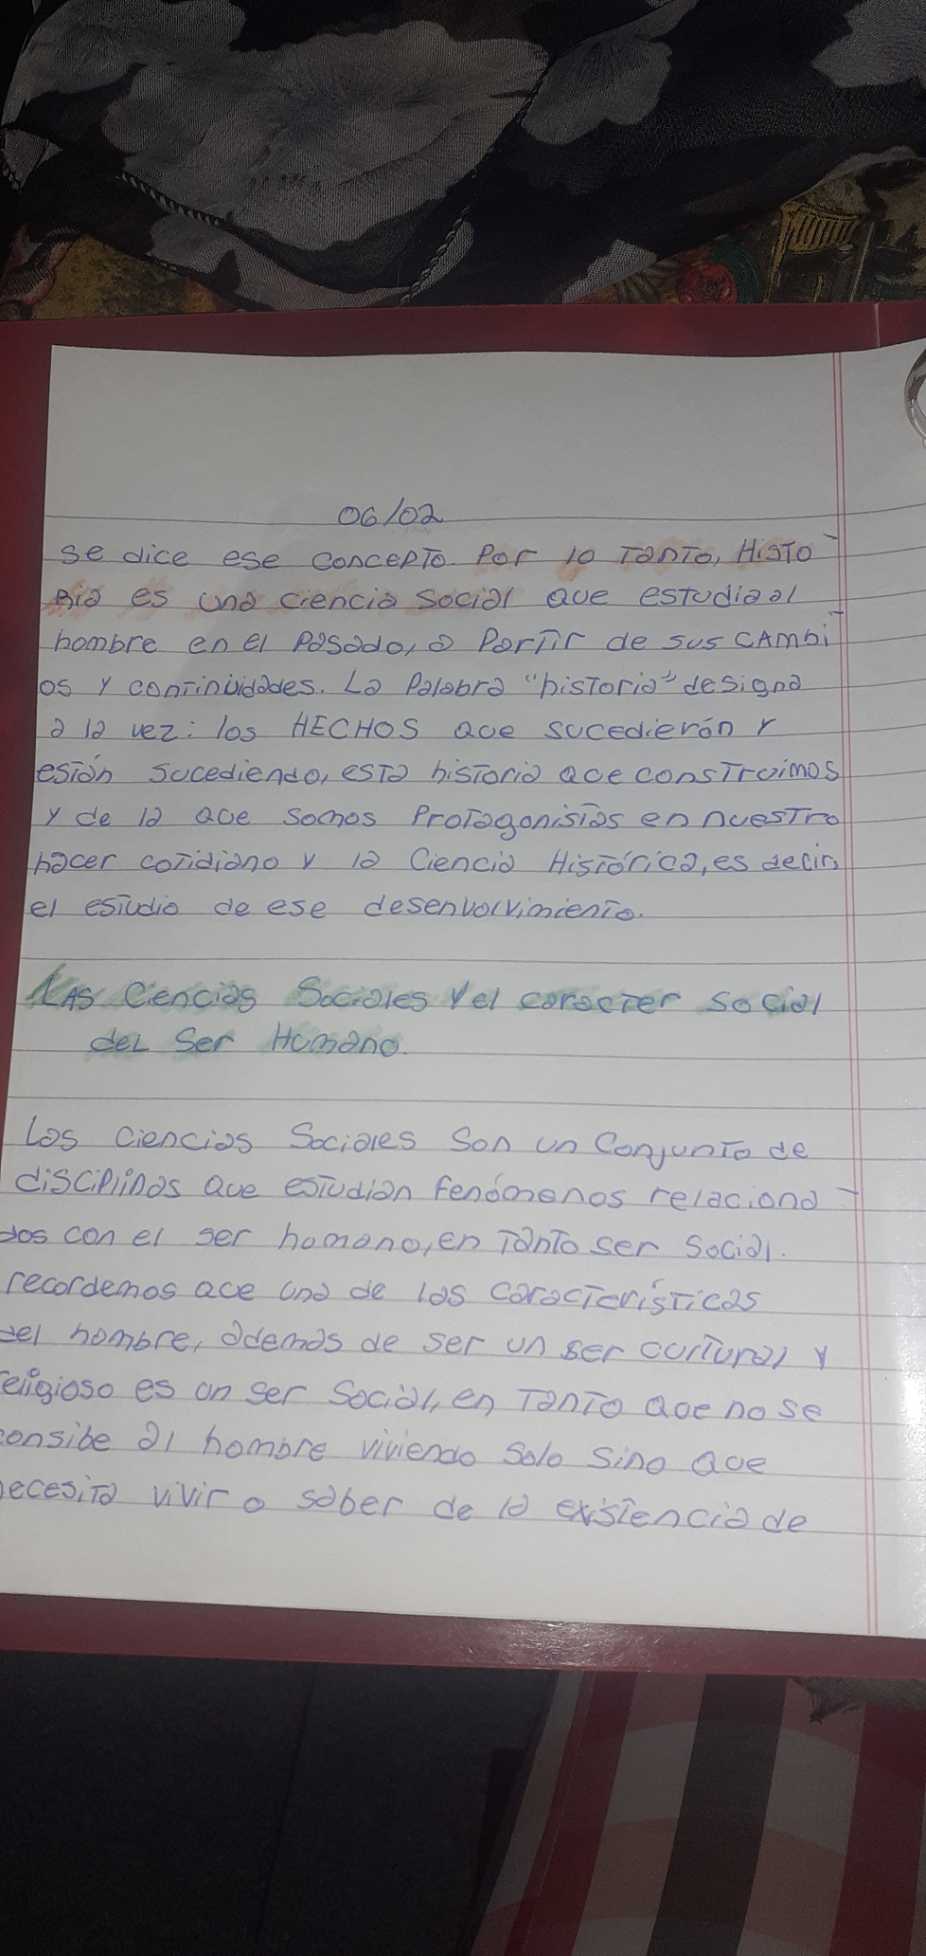 06/02
se dice ese concepto. Por lo tanto, Histo-
Ria es una ciencia social que estudia al
hombre en el Pasado, a Partir de sus CAmbi-
os y continuidades. La Palabra "historia" designa
a la vez: los HECHOS que sucedierón y
están sucediendo, esta historia que construimos
y de la que somos Protagonistas en nuestro
hacer cotidiano y la Ciencia Histórica, es decir,
el estudio de ese desenvolvimiento.
LAS Ciencias Sociales y el caracter social
del Ser Humano.
Las ciencias Sociales son un Conjunto de
disciplinas que estudian fenómenos relaciona-
dos con el ser humano, en tanto ser social.
recordemos que una de las características
del hombre, además de ser un ser cultural y
religioso es un ser Social, en tanto que no se
consibe al hombre viviendo solo sino que
necesita vivir o saber de la existencia de